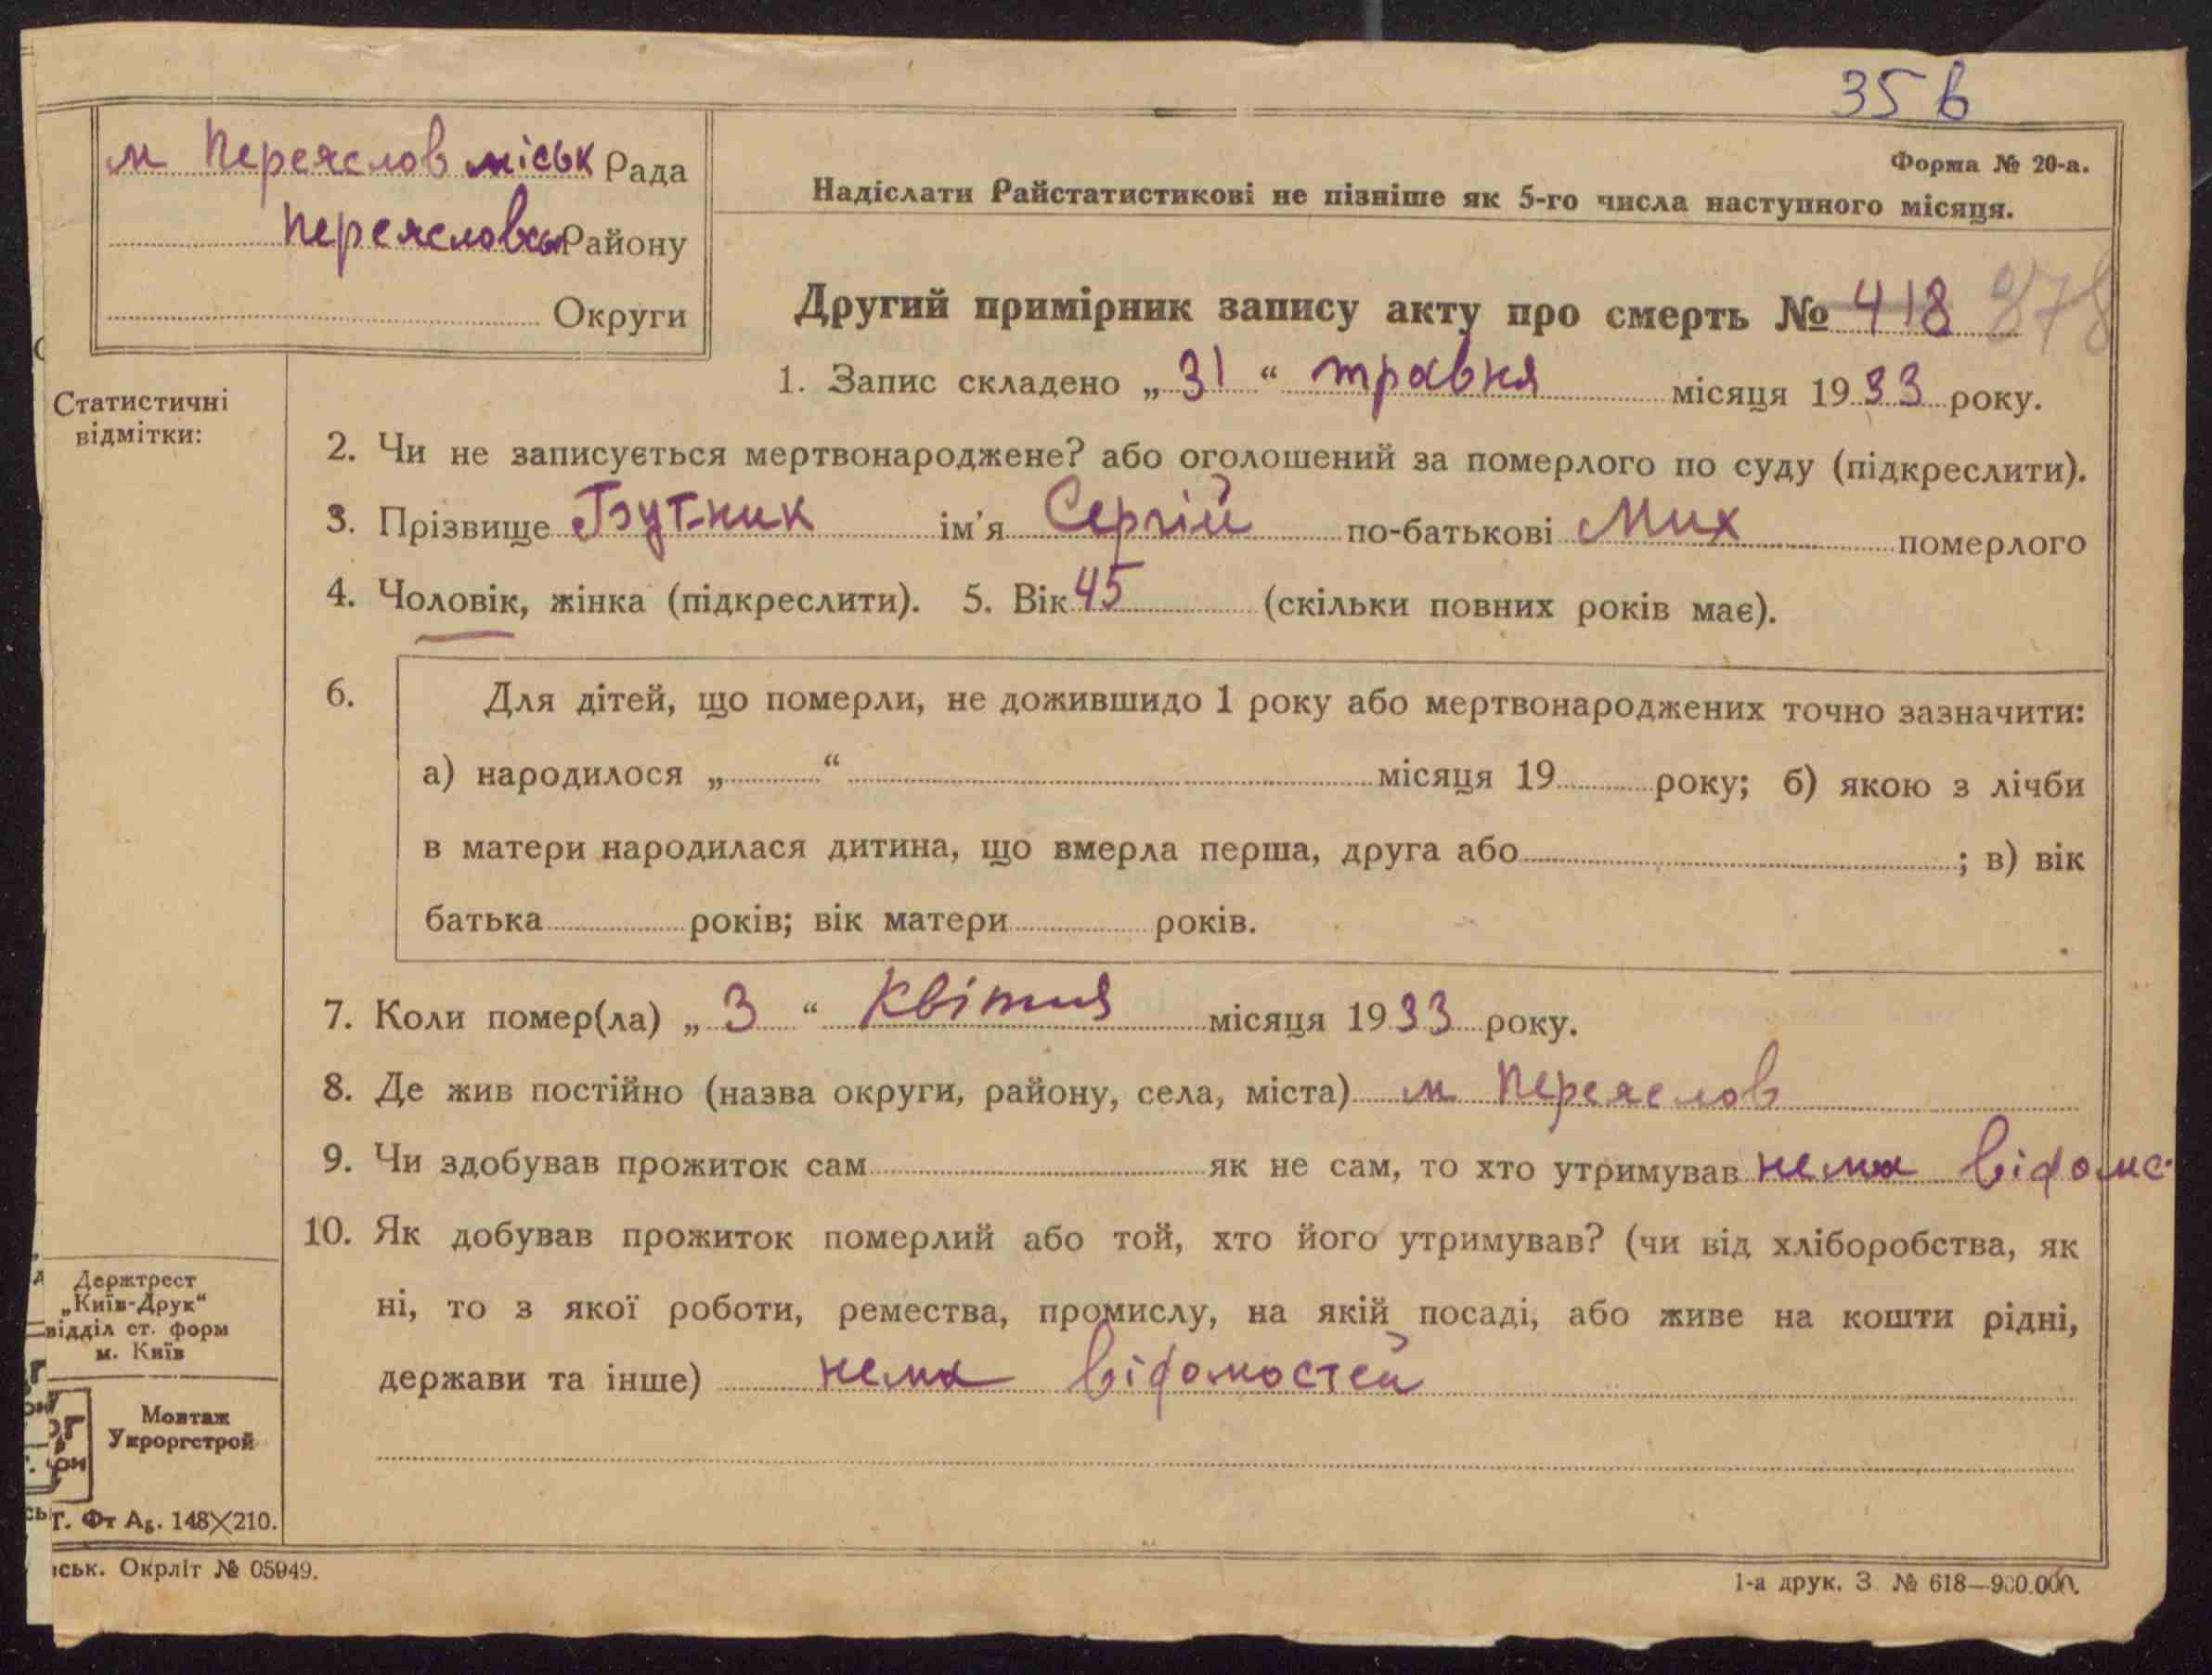 35 в
м Переяслов міськ Рада
Переясловськ Району
Округи
Форма № 20-а.
Надіслати Райстатистикові не пізніше як 5-го числа наступного місяця.
Другий примірник запису акту про смерть № 418 878
1. Запис складено „31“ травня місяця 1933 року.
Статистичні
відмітки:
2. Чи не записується мертвонароджене? або оголошений за померлого по суду (підкреслити).
3. Прізвище Бутник ім'я Сергій по-батькові Мих померлого
4. Чоловік, жінка (підкреслити). 5. Вік 45 (скільки повних років має).
6. Для дітей, що померли, не дожившидо 1 року або мертвонароджених точно зазначити:
а) народилося „ “ місяця 19 року; б) якою з лічби
в матери народилася дитина, що вмерла перша, друга або ; в) вік
батька років; вік матери років.
7. Коли помер(ла) „3“ Квітня місяця 1933 року.
8. Де жив постійно (назва округи, району, села, міста) м Переяслов
9. Чи здобував прожиток сам як не сам, то хто утримував нема відомс
10. Як добував прожиток померлий або той, хто його утримував? (чи від хліборобства, як
ні, то з якої роботи, ремества, промислу, на якій посаді, або живе на кошти рідні,
держави та інше) нема відомостей
Держтрест
„Київ-Друк“
відділ ст. форм
м. Київ
Монтаж
Укроргстрой
Т. Фт А₅. 148×210.
ськ. Окрліт № 05949.
1-а друк. З № 618—900.000.